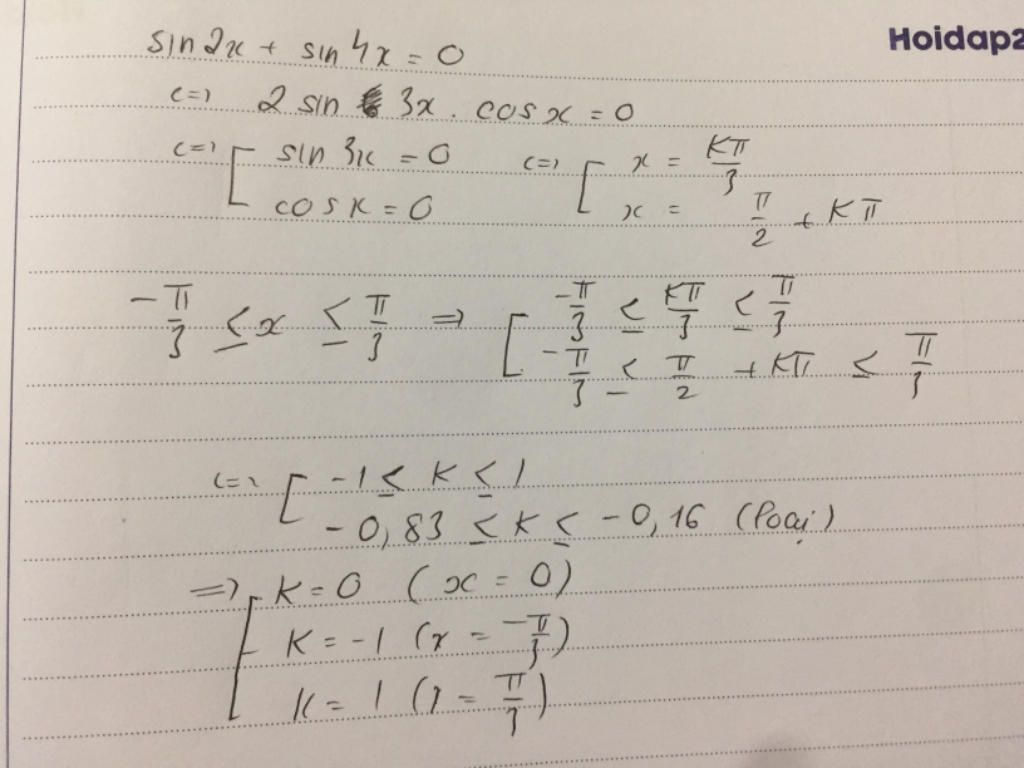 Hoidap2
sin2x + sin4x = 0
<=> 2 sin 3x . cosx = 0
<=> [ sin 3x = 0 <=> [ x = kπ/3
cosx = 0 x = π/2 + kπ
-π/3 ≤ x ≤ π/3 => [ -π/3 ≤ kπ/3 ≤ π/3
-π/3 ≤ π/2 + kπ ≤ π/3
<=> [ -1 ≤ k ≤ 1
-0,83 ≤ k ≤ -0,16 (loại)
=> [ k = 0 (x = 0)
k = -1 (x = -π/3)
k = 1 (x = π/3)